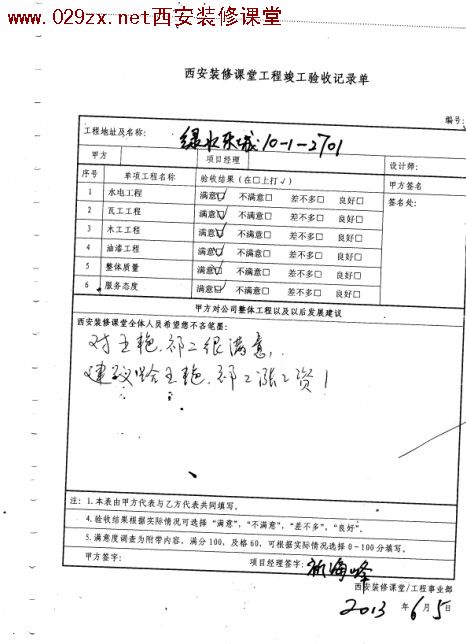 www.029zx.net西安装修课堂
西安装修课堂工程竣工验收记录单
编号:
工程地址及名称: 绿水东城 10-1-2701
甲方 项目经理 设计师:
序号 单项工程名称 验收结果(在□上打√) 甲方签名
1 水电工程 满意☑ 不满意□ 差不多□ 良好□ 签名处:
2 瓦工工程 满意☑ 不满意□ 差不多□ 良好□
3 木工工程 满意☑ 不满意□ 差不多□ 良好□
4 油漆工程 满意☑ 不满意□ 差不多□ 良好□
5 整体质量 满意☑ 不满意□ 差不多□ 良好□
6 服务态度 满意☑ 不满意□ 差不多□ 良好□
甲方对公司整体工程以及以后发展建议
西安装修课堂全体人员希望您不吝笔墨:
对王艳.祁工很满意,
建议给王艳.祁工涨工资!
注: 1.本表由甲方代表与乙方代表共同填写。
4.验收结果根据实际情况可选择“满意”,“不满意”,“差不多”,“良好”。
5.满意度调查为附带内容,满分100,及格60,可根据实际情况选择0-100分填写。
甲方签字: 项目经理签字: 祁海峰
西安装修课堂/工程事业部
2013 年 6 月 5 日